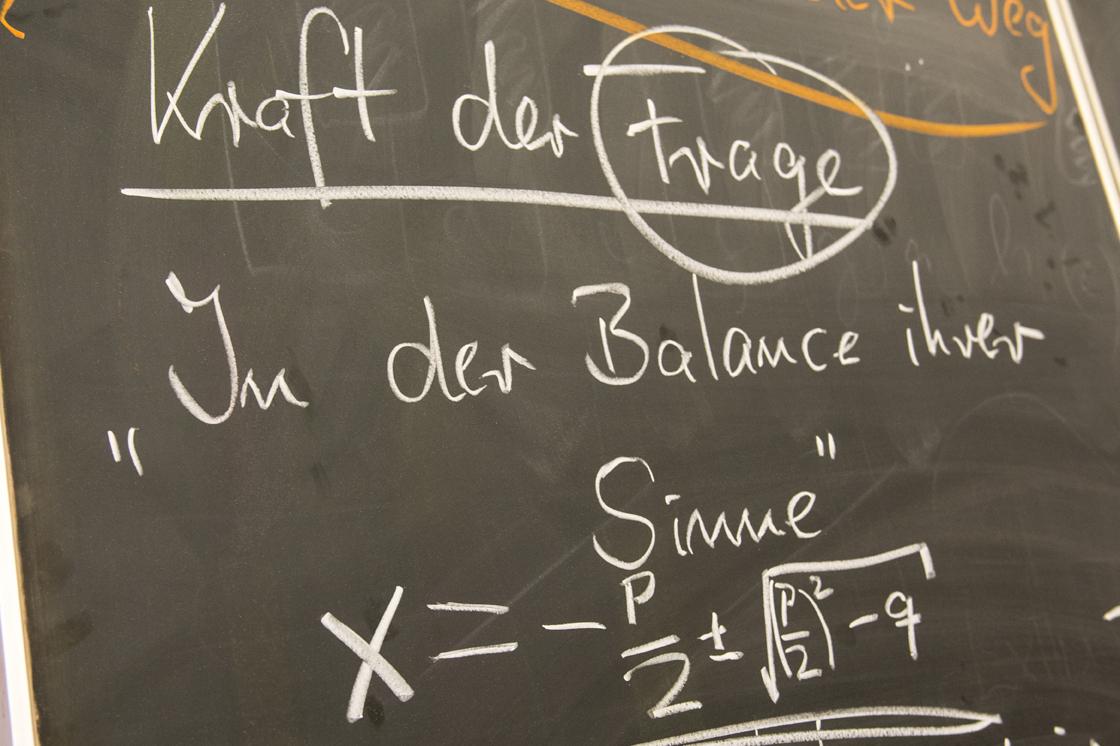 Weg
Kraft der Frage
"In der Balance ihrer
Sinne"
x = - p/2 ± √((p/2)² - q)